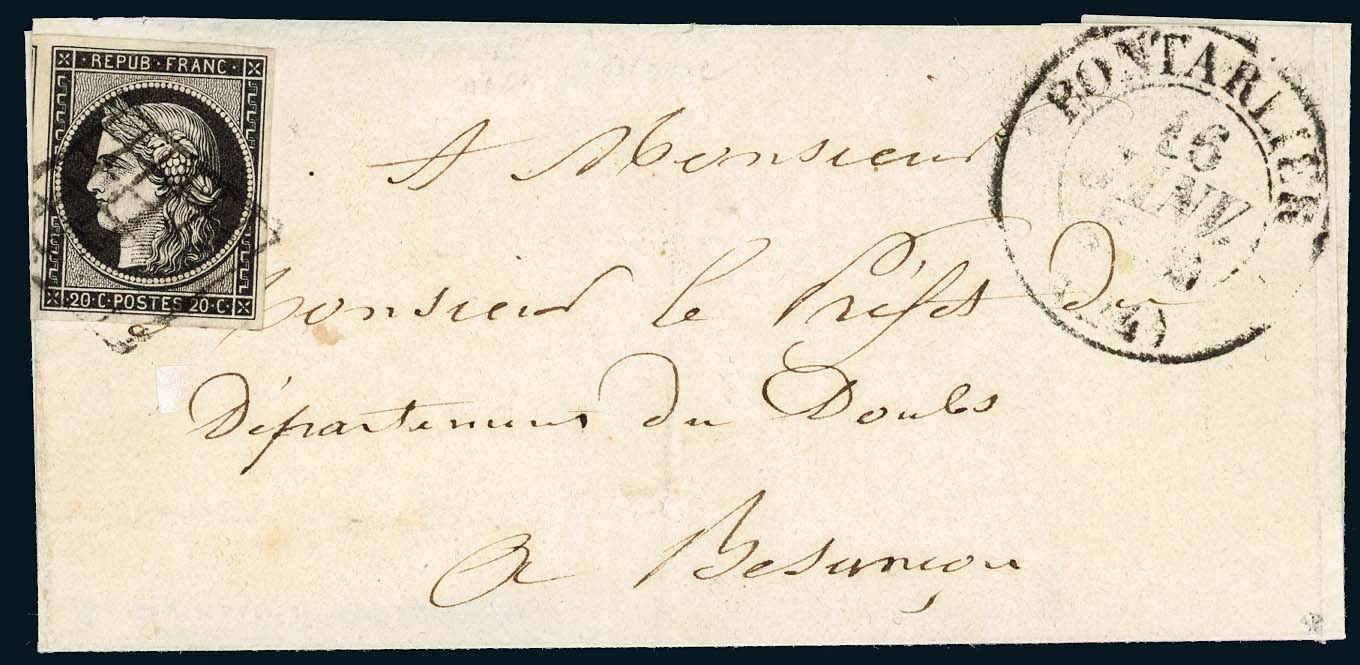 REPUB·FRANC·
20·C·POSTES 20·C·
PONTARLIER
16
JANV.
A Monsieur
Monsieur le Préfet du
Département du Doubs
a Besançon